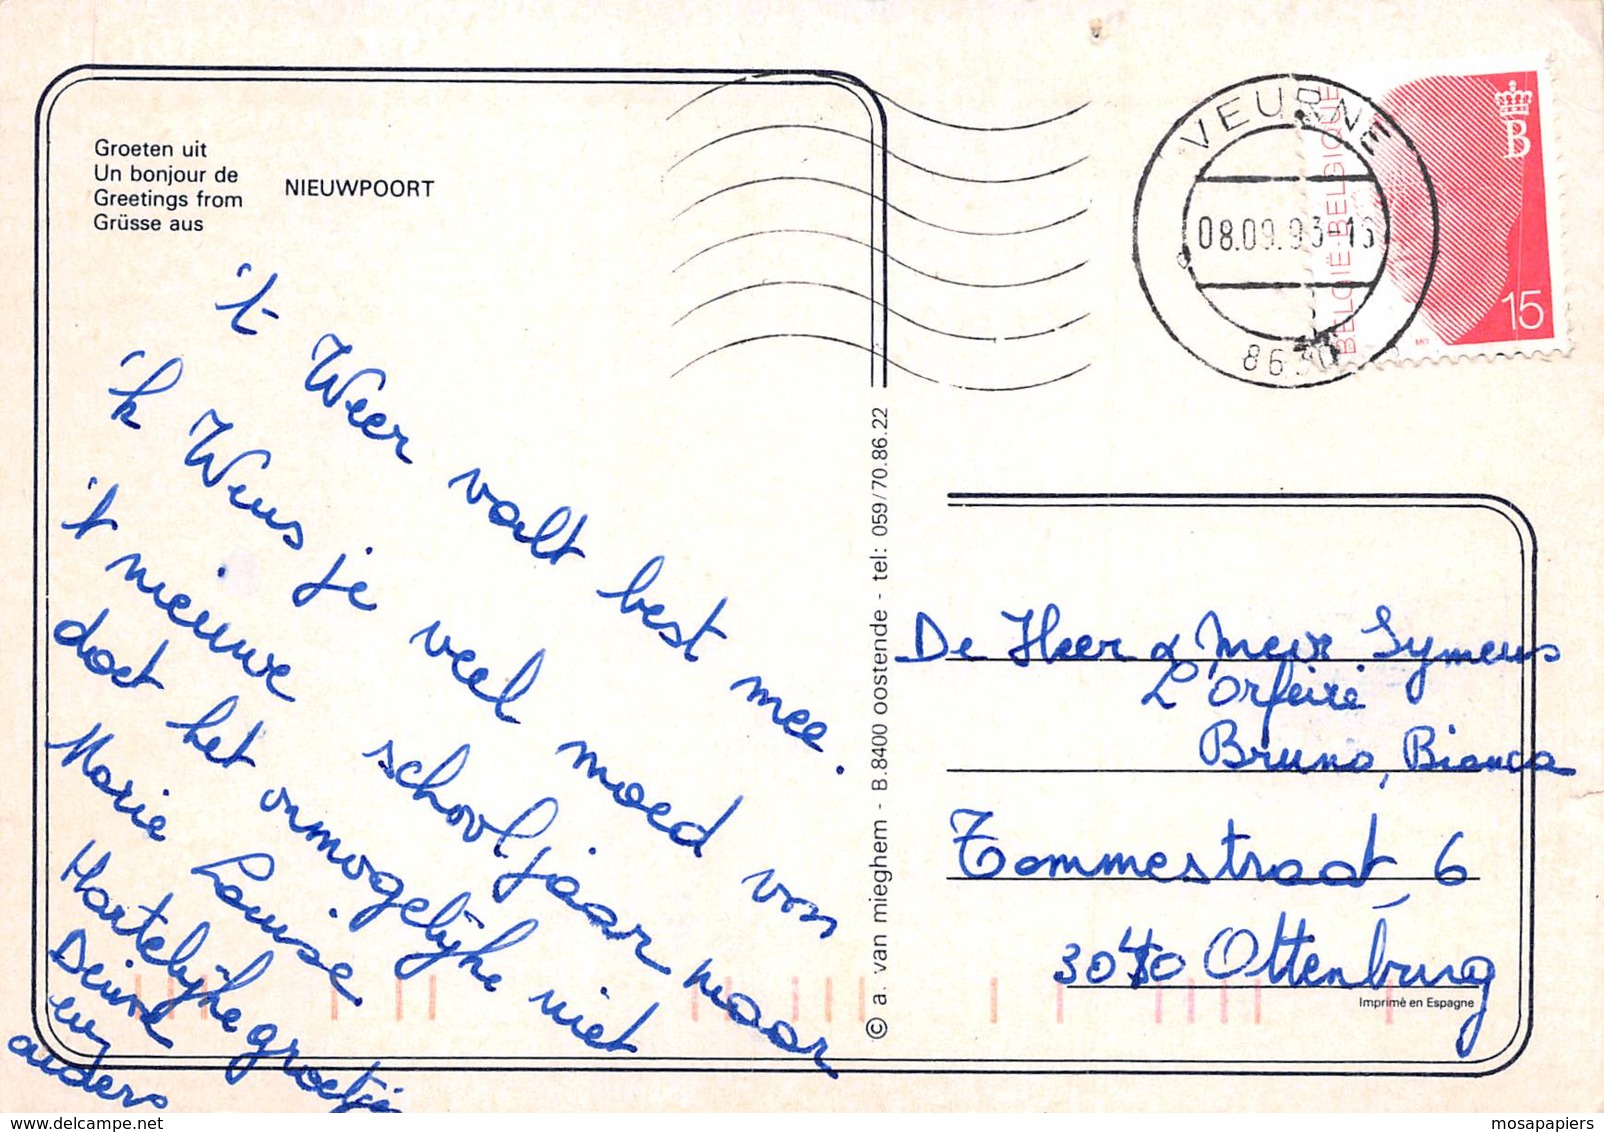 Groeten uit
Un bonjour de
Greetings from
Grüsse aus
NIEUWPOORT
't Weer valt best mee.
ik Wens je veel moed van
't nieuwe schooljaar maar
doet het onmogelijke niet
Marie Louise
Hartelijke groetjes
en
ouders
© a. van mieghem - B.8400 oostende - tel: 059/70.86.22
VEURNE
08.09.93-16
8630
BELGIË-BELGIQUE
B
15
MO
De Heer & Mevr Symens
Bruno, Bianca
Tommestraat, 6
3040 Ottenburg
Imprimé en Espagne
mosapapiers